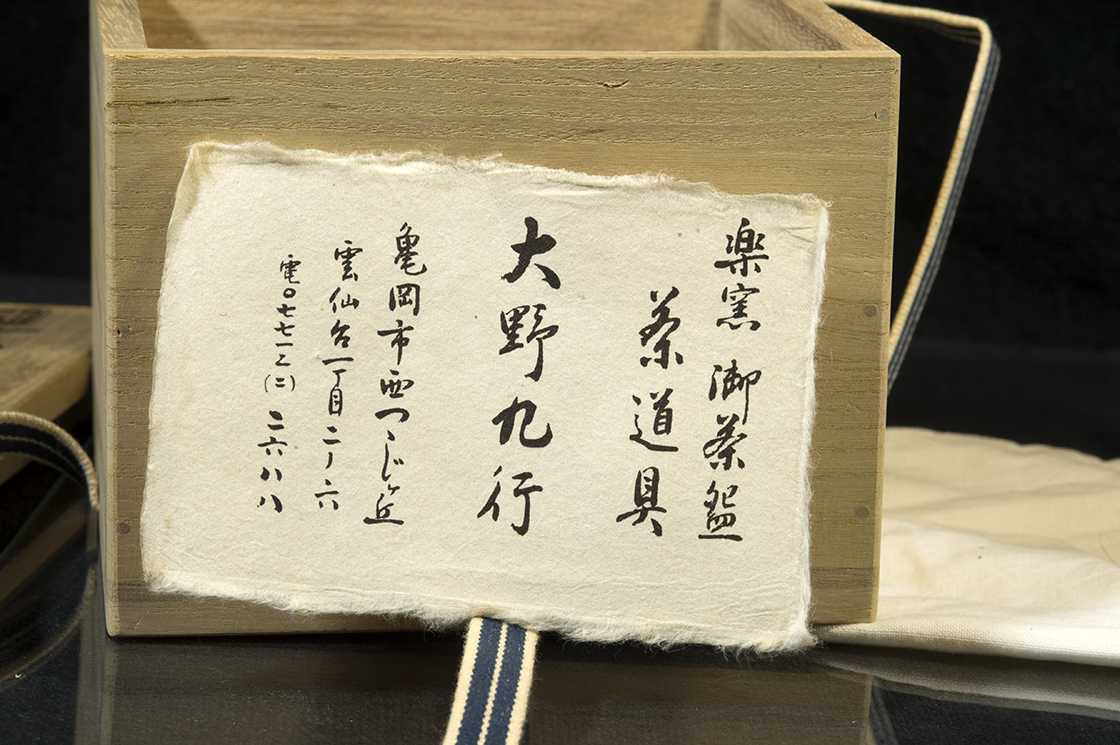 楽窯 御茶盌
茶道具
大野九行
亀岡市西つゝじヶ丘
雲仙台一丁目二ノ六
電〇七七一二(二)二六八八